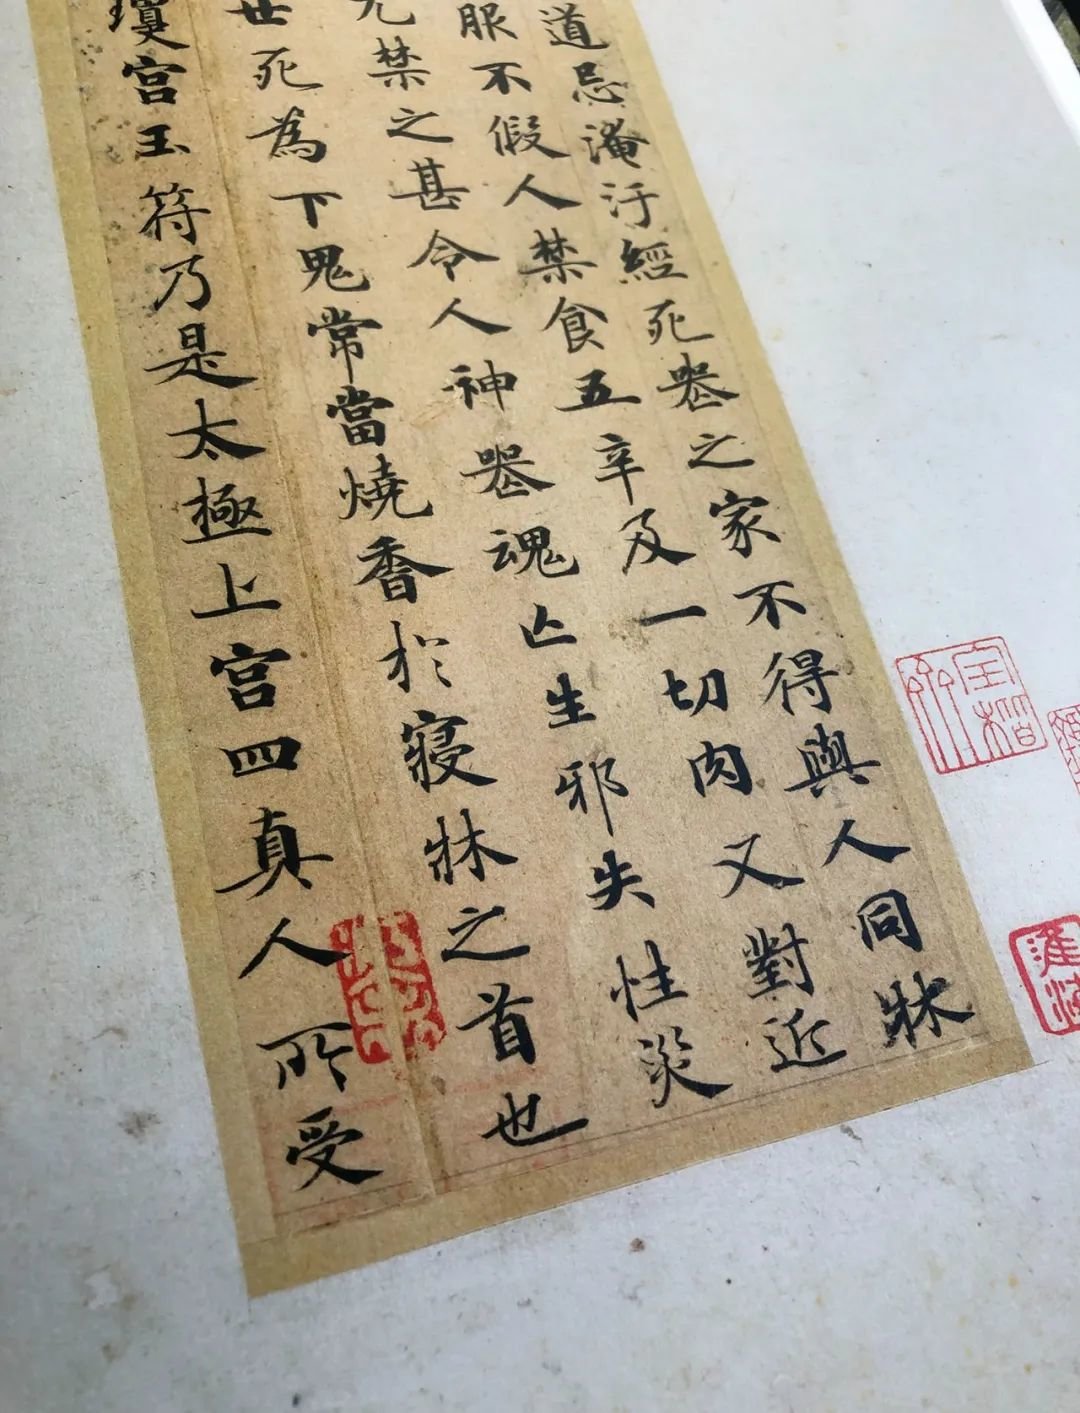 道忌淹汙經死喪之家不得與人同牀
服不假人禁食五辛及一切肉又對近
尤禁之甚令人神喪魂亡生邪失性災
世死為下鬼常當燒香於寢牀之首也
瓊宮玉符乃是太極上宮四真人所受